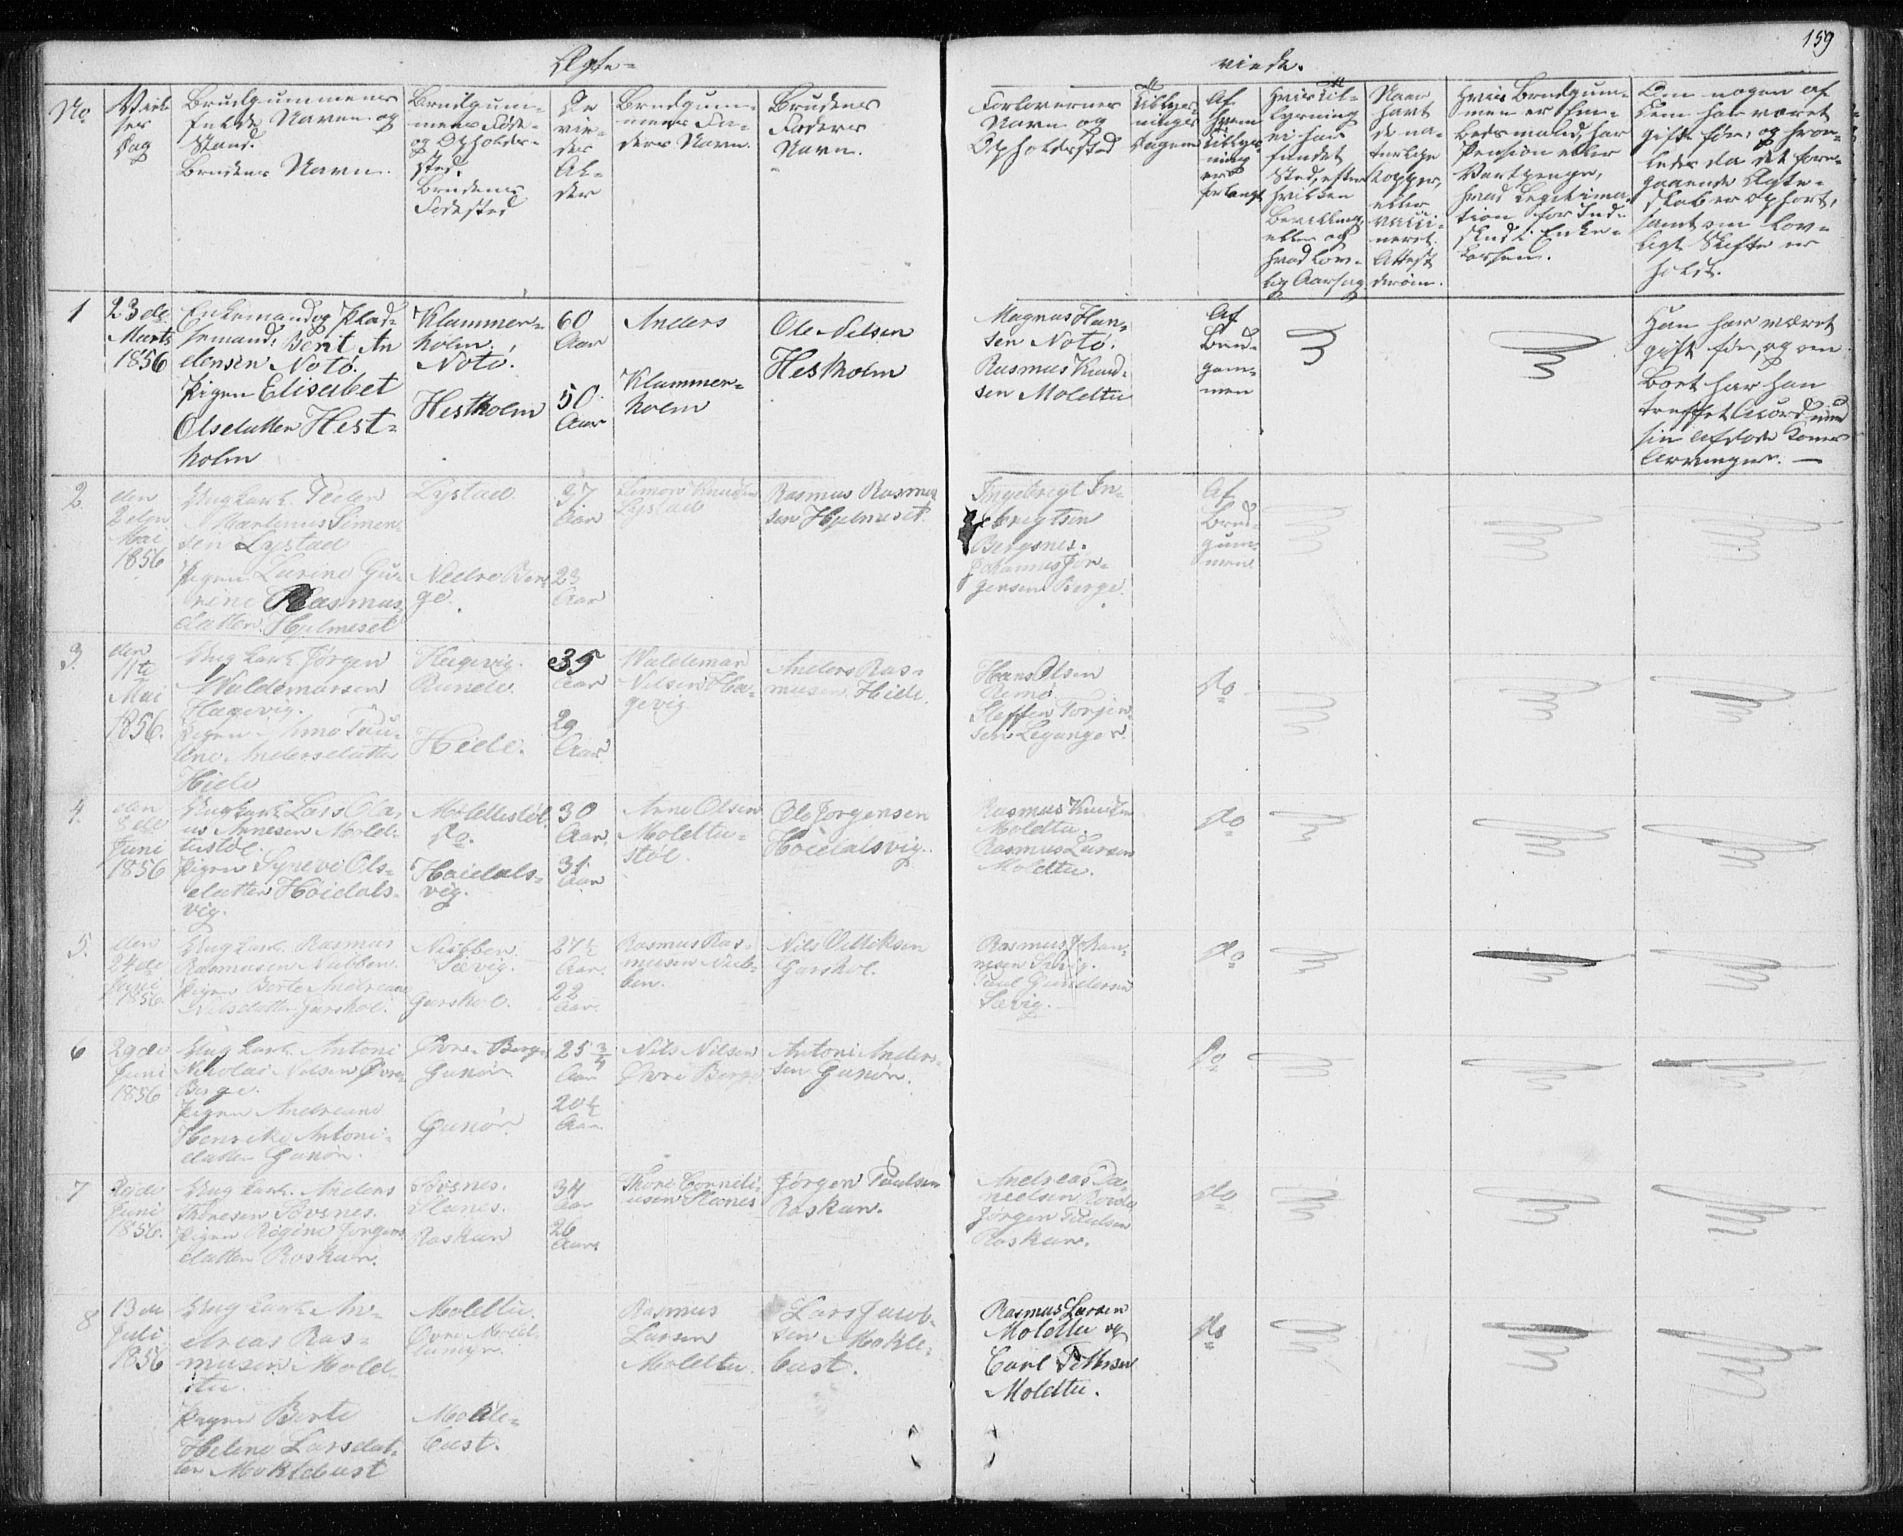 159
Ægte-
viede.
No
Vielses
Dag
Brudgummens
fulde Navn og
Stand.
Brudens Navn.
Brudgum-
mens Føde-
og Opholds-
sted.
Brudens
Fødested
De
vie-
des
Al-
der
Brudgum-
mens Fa-
ders Navn.
Brudens
Faders
Navn.
Forlovernes
Navn og
Opholdssted
Tillys-
ningens
Dagene
Af
hvem
Tillys-
ning
er
forlangt
Hvis Til-
lysning
ei har
fundet
Sted, efter
hvilken
Bevilling
eller af
hvad lov-
lig Aarsag
Naar
havt
de na-
turlige
Kopper,
eller
vacci-
neret.
Attest
derom.
Hvis Brudgum-
men er Em-
bedsmand, har
Pension eller
Vartpenge,
hvad Legitima-
tion for Ind-
skud i Enke-
kassen.
Om nogen af
dem har været
gift før, og hvor-
ledes da det fore-
gaaende Ægte-
skab er ophørt,
samt om lov-
ligt Skifte er
holdt.
1
23de
Marts
1856
Enkemand og Plad-
semand, Berit An
dersen Notø.
Pigen Elisabet
Olsdatter Hest-
holm
Klammer-
holm.
Notø.
Hestholm
60
Aar
50
Aar
Anders
Klammer-
holm
Ole Nilsen
Hestholm
Magnus Han-
sen Notø.
Rasmus Knud-
sen Moldtu
Af
Brud-
gum-
men
Han har været
gift før, og om
Boet har han
truffet Accord med
sin afdøde Kones
Arvinger. —
2
den
Mai
1856
Ungkarl. Peder
Martinus Simon
sen Lystad
Pigen Larine Gu-
rine Rasmus
datter Hjelmeset
Lystad
Nedre Ber-
ge.
37
Aar
23
Aar
Simon Knudsen
Lystad
Rasmus Rasmus
sen Hjelmeset.
Ingebrigt In-
gebrigtsen
Bergsnes.
Johannes Jør-
gensen Berge.
Af
Brud-
gum-
men
3.
den
11te
Mai
1856.
Ungkarl. Jørgen
Waldemarsen
Hagevig.
Pigen Anne Pau-
line Andersdatter
Hide
Hagevig.
Runde.
Hide.
35
Aar
29
Aar
Waldemar
Nilsen Ha-
gevig
Anders Ras-
musen Hide.
Hans Olsen
Remø
Steffen Torgier-
sen Leganger.
do
4.
den
8de
Juni
1856
Ungkarl. Lars Ola-
us Arnesen Mold-
tustøl.
Pigen Syneve Ols-
datter Høidals-
vig.
Moldtustøl
do.
Høidals-
vig.
30
Aar.
31
Aar
Arne Olsen
Moldtu-
støl.
Ole Jørgensen
Høidalsvig.
Rasmus Knudsen
Moldtu.
Rasmus Larsen
Moldtu.
do
5.
den
24de
Juni
1856
Ungkarl. Rasmus
Rasmusen Nubben.
Pigen Berte Andreane
Nilsdatter Gurskøl.
Nubben.
Sævig.
Gurskøl.
27½
Aar.
22
Aar.
Rasmus Ras-
musen Nub-
ben.
Nils Villiksen
Gurskøl.
Rasmus Johan-
nesen Sævig.
Paul Gundersen
Sævig.
do
6
29de
Juni
1856
Ungkarl. Antoni
Nikolai Nilsen Øvre
Berge.
Pigen Andreane
Henrike Antoni-
datter Gunør.
Øvre-Berge
Gunør.
Gunør.
25¾
Aar
20½
Aar
Nils Nilsen
Øvre Berge
Antoni Anders-
sen Gunør.
Do
7
29de
Juni
1856.
Ungkarl. Anders
Thoresen Tovsnes.
Pigen Regine Jørgens
datter Røskar.
Tovsnes.
Stenes.
Røskar
34
Aar
26
Aar
Thore Corneli-
usen Stocnes
Jørgen Paulsen
Røskar.
Andreas Da-
nielsen Rovde
Jørgen Paulsen
Røskar.
do
8
13de
Juli
1856
Ungkarl An-
dreas Ras-
musen Mold-
tu.
Pigen Berte
Heline Larsdat-
ter Moklebust
Moldtu
Moкle-
bust.
Rasmus
Larsen
Moldtu.
Lars Jacob-
sen Mokle-
bust.
Rasmus Larsen
Moldtu og
Carl Pettersen
Moldtu.
do